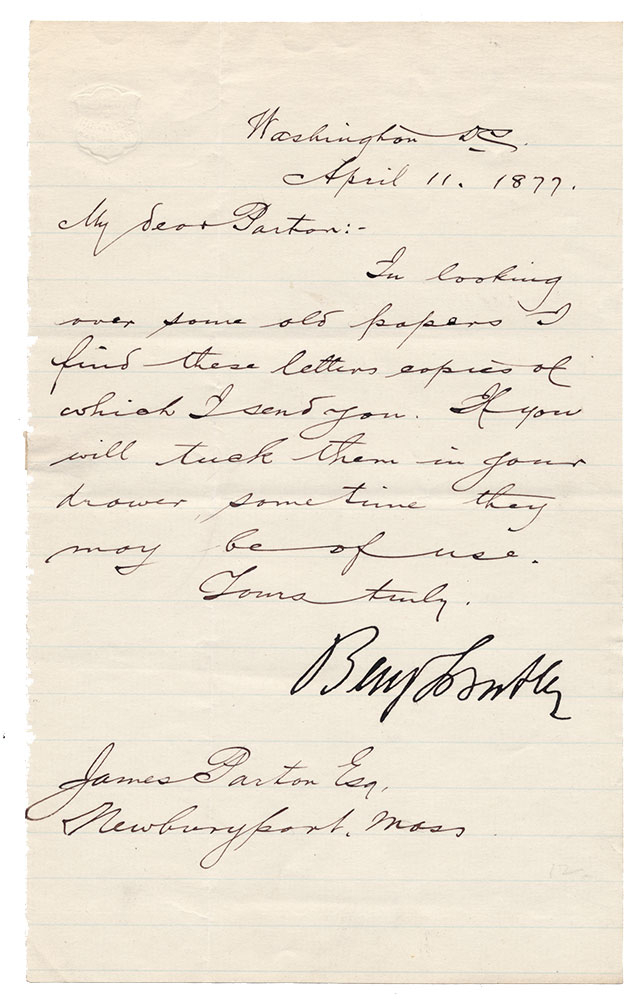 Washington DC.
April 11. 1877.
My dear Parton:-
In looking
over some old papers I
find these letters copies of
which I send you. If you
will tuck them in your
drawer, sometime they
may be of use.
Yours truly.
Benj F Butler
James Parton Esq.
Newburyport. Mass